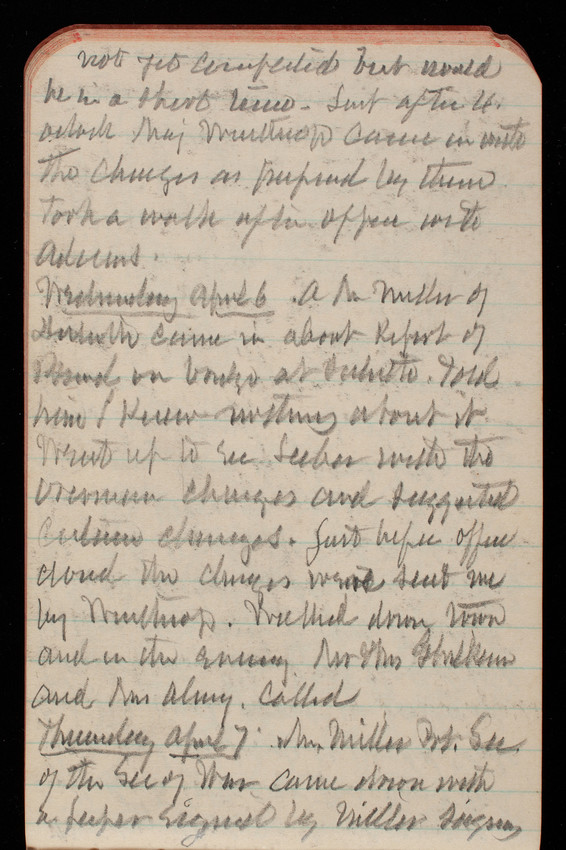 not yet completed but would
be in a short time. Just after 4.
oclock Maj Winthrop came in with
the charges as prepared by them
Took a walk after office with
Adams.
Wednesday April 6. A Mr Miller of
Duluth came in about Report of
Board on bridge at Duluth. Told
him I knew nothing about it
Went up to see Secty with the
charges and suggested
certain changes. Just before office
closed the charges were sent me
by Winthrop. Walked down town
and in the evening Mr & Mrs
and Mrs Almy. called
Thursday April 7. Mr. Miller Pvt. Sec.
of the Sec of War came down with
a paper signed by Miller